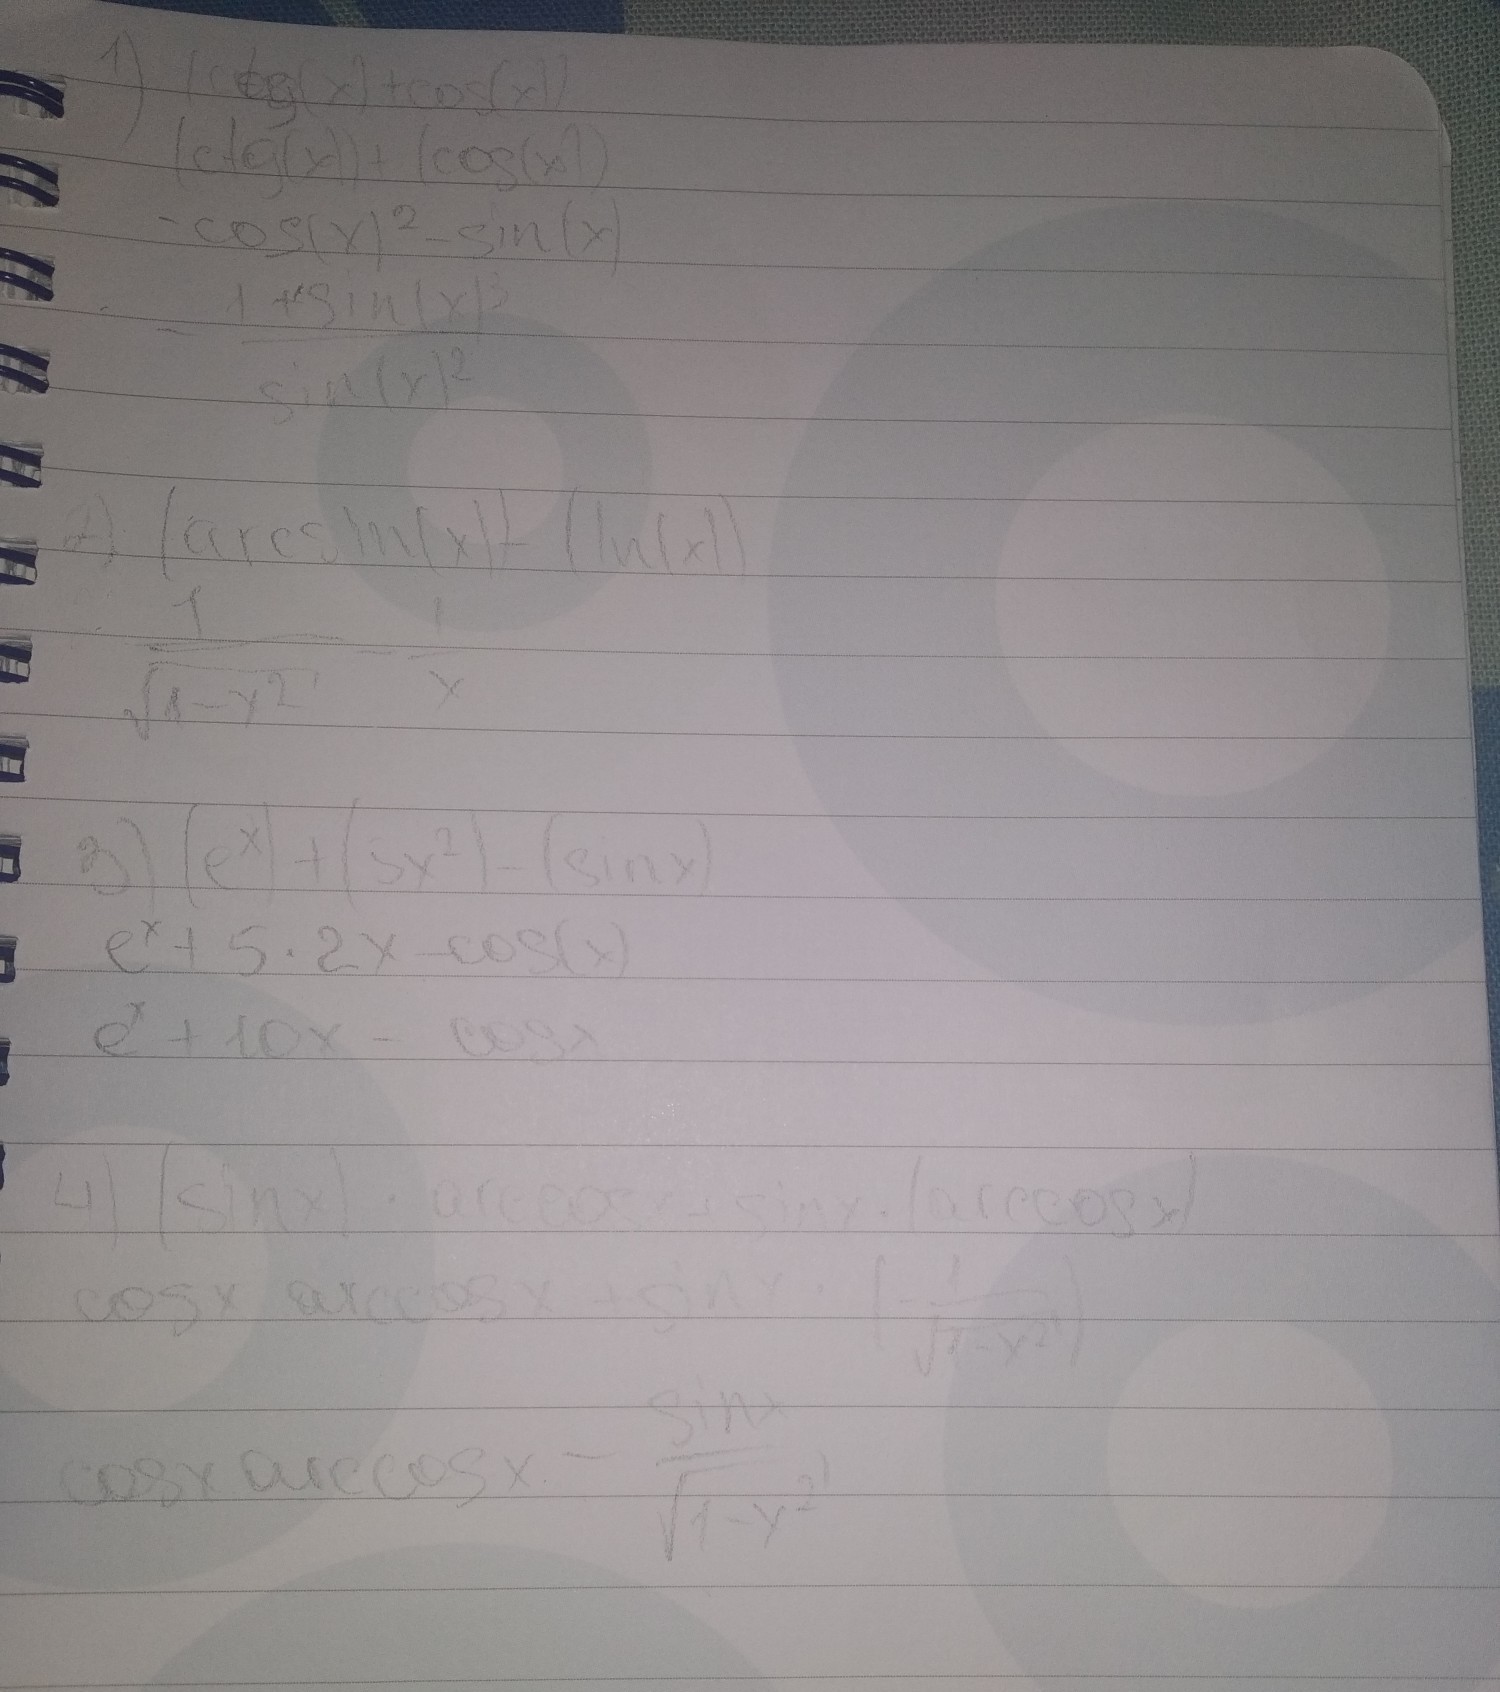 1) (ctg(x)+cos(x))
(ctg(x))+(cos(x))
-cos(x)²-sin(x)
- 1+sin(x)³ / sin(x)²
2) (arcsin(x))-(ln(x))
1/√1-x² - 1/x
3) (eˣ)+(5x²)-(sinx)
eˣ+5·2x-cos(x)
eˣ+10x-cosx
4) (sinx)·arccosx+sinx·(arccosx)
cosx arccosx+sinx·(-1/√1-x²)
cosx arccosx - sinx/√1-x²